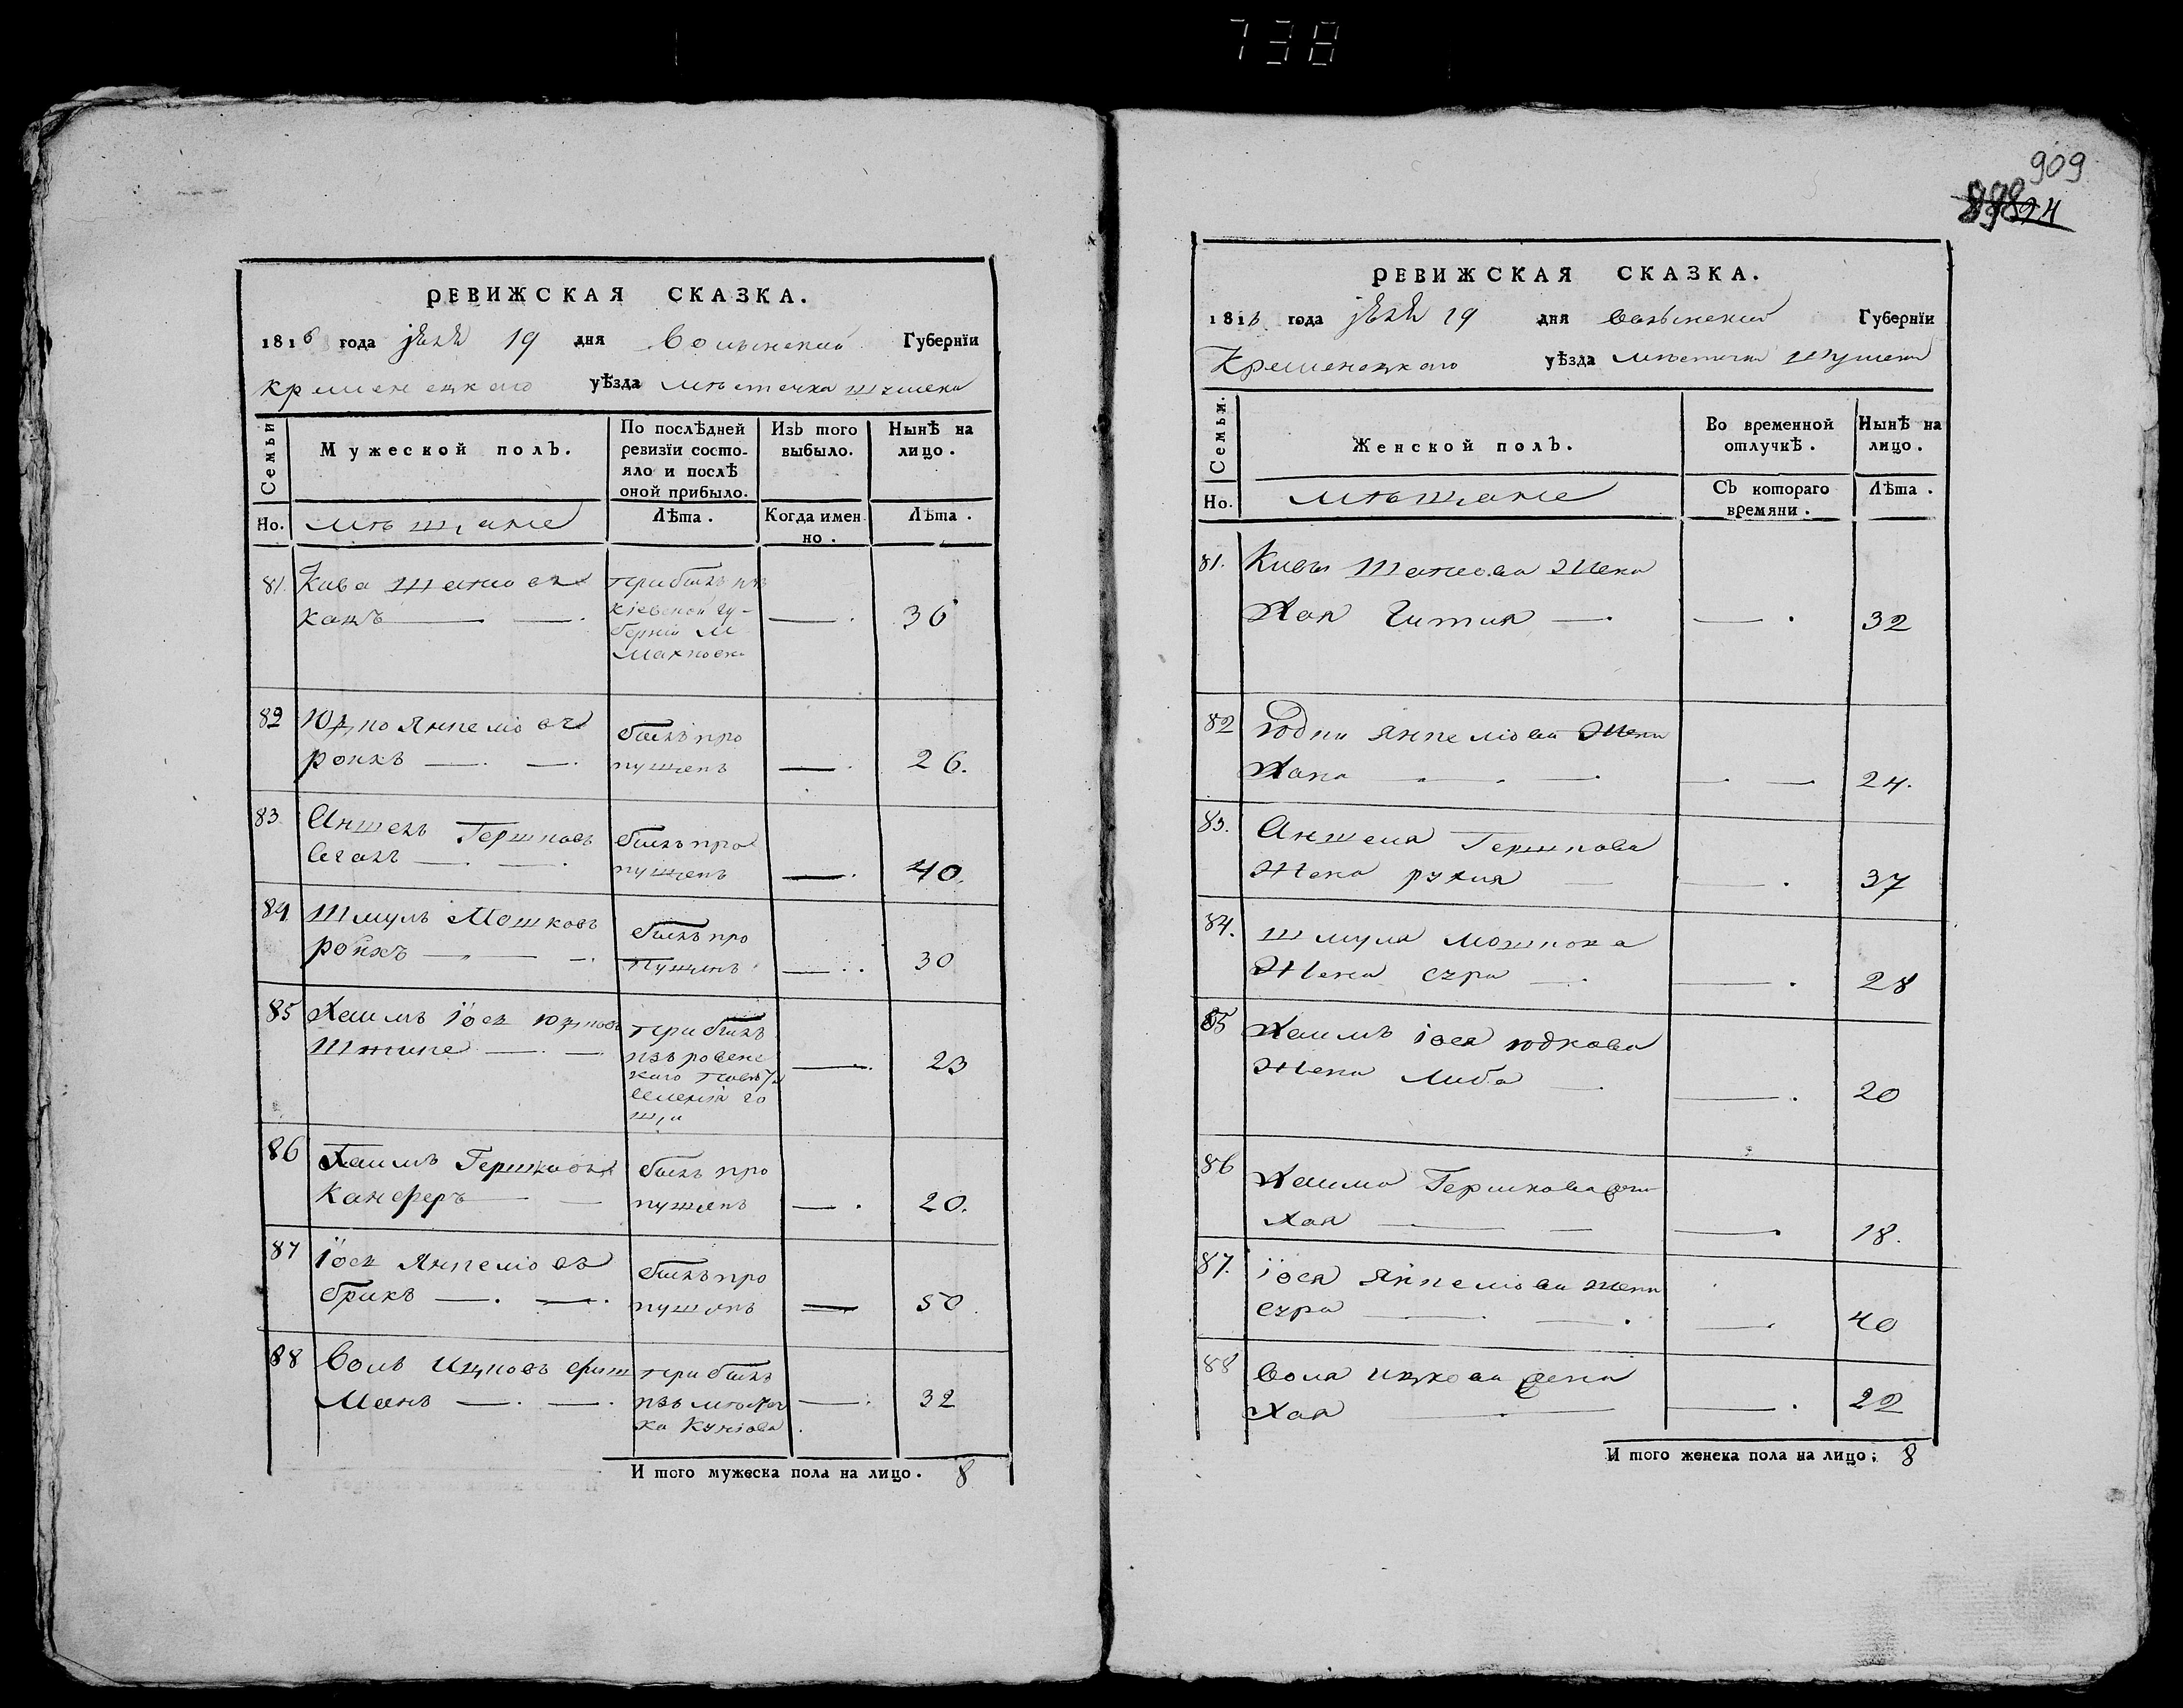 738
РЕВИЖСКАЯ СКАЗКА.
1816 года 19 дня Волынской Губернїи
Кременецкаго уѣзда мѣстечка Шумска
Семьи
Мужеской полъ.
По послѣдней ревизїи состо-
яло и послѣ
оной прибыло.
Изъ того
выбыло.
Нынѣ на
лицо.
Но.
мѣщане
Лѣта.
Когда имен
но.
Лѣта.
81.
Кива
канъ
прибылъ изъ
кіевской гу-
берніи м
Махновки
36
82
Юдко Янкеліовъ
ройхъ
былъ про
пущенъ
26.
83
Аншель Гершковъ
былъ про
пущенъ
40.
84
Шмуль Мошковъ
ройхъ
былъ про
пущенъ
30
85
Хаимъ Іось Юдковъ
прибылъ
изъ ровенс
каго
селенія го
щи
23
86
Хаимъ Гершковъ
Канферъ
былъ про
пущенъ
20.
87
Іось Янкеліовъ
брикъ
былъ про
пущенъ
50
88
Воль Ицковъ фиш
манъ
прибылъ
изъ мѣстеч
ка Кунiова
32
И того мужеска пола на лицо. 8
909
РЕВИЖСКАЯ СКАЗКА.
1816 года 19 дня Волынской Губернїи
Кременецкаго уѣзда мѣстечка Шумска
Семьи.
Женской полъ.
Во временной
отлучкѣ.
Нынѣ на
лицо.
Но.
мѣщане
Съ котораго
времяни.
Лѣта.
81.
Кивы жена
Хая Гитля
32
82
Юдки Янкеліова жена
Хана
24.
83.
Аншеля Гершкова
жена рухля
37
84.
Шмуля Мошкова
жена сура
28
85
Хаимъ Іося Юдкова
жена Либа
20
86
Хаима Гершкова жена
Хая
18.
87.
Іося Янкеліова жена
сура
40
88
Воля Ицкова жена
Хая
22
И того женска пола на лицо; 8